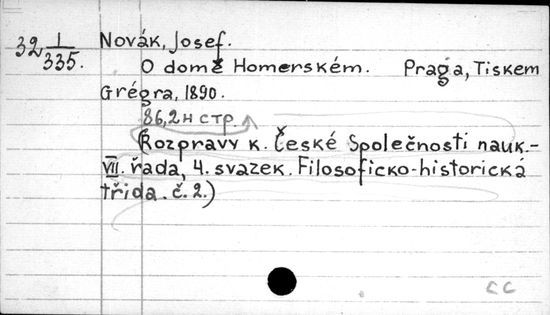 32 1/335.
Novák, Josef.
O domě Homerském. Praga, Tiskem
Grégra, 1890.
86,2 н стр.
(Rozpravy k. České Společnosti nauk.-
VII. řada, 4. svazek. Filosoficko-historická
třída. č. 2.)
CC